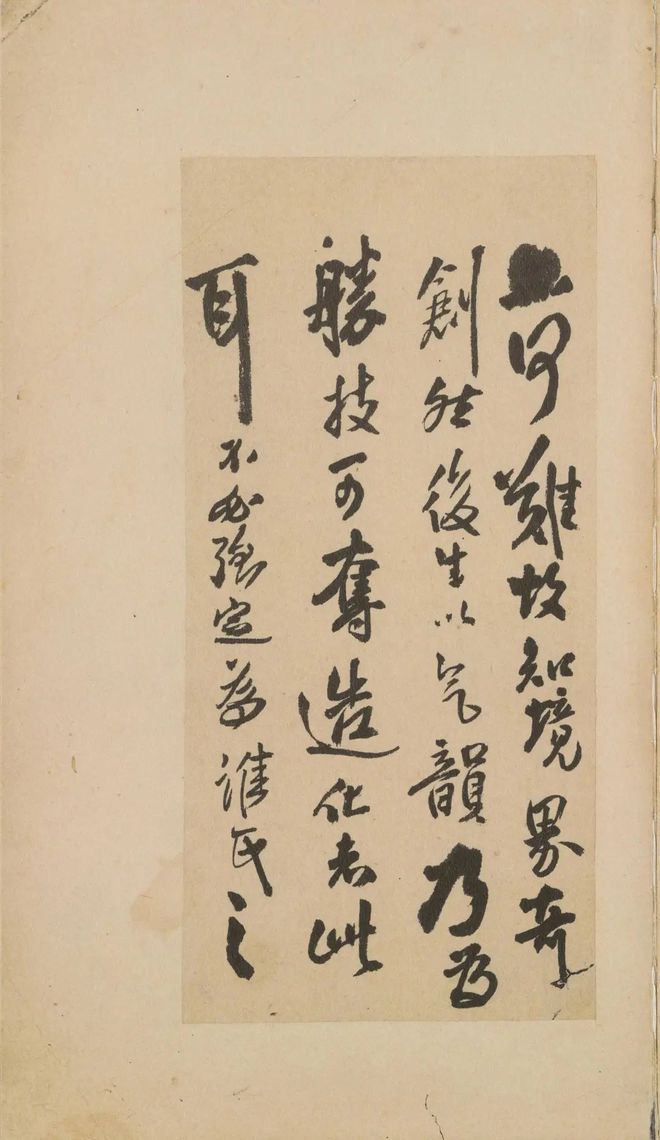 何難故知境界奇
創然後生以气韻乃為
勝技可奪造化者此
耳不必強定為誰氏之